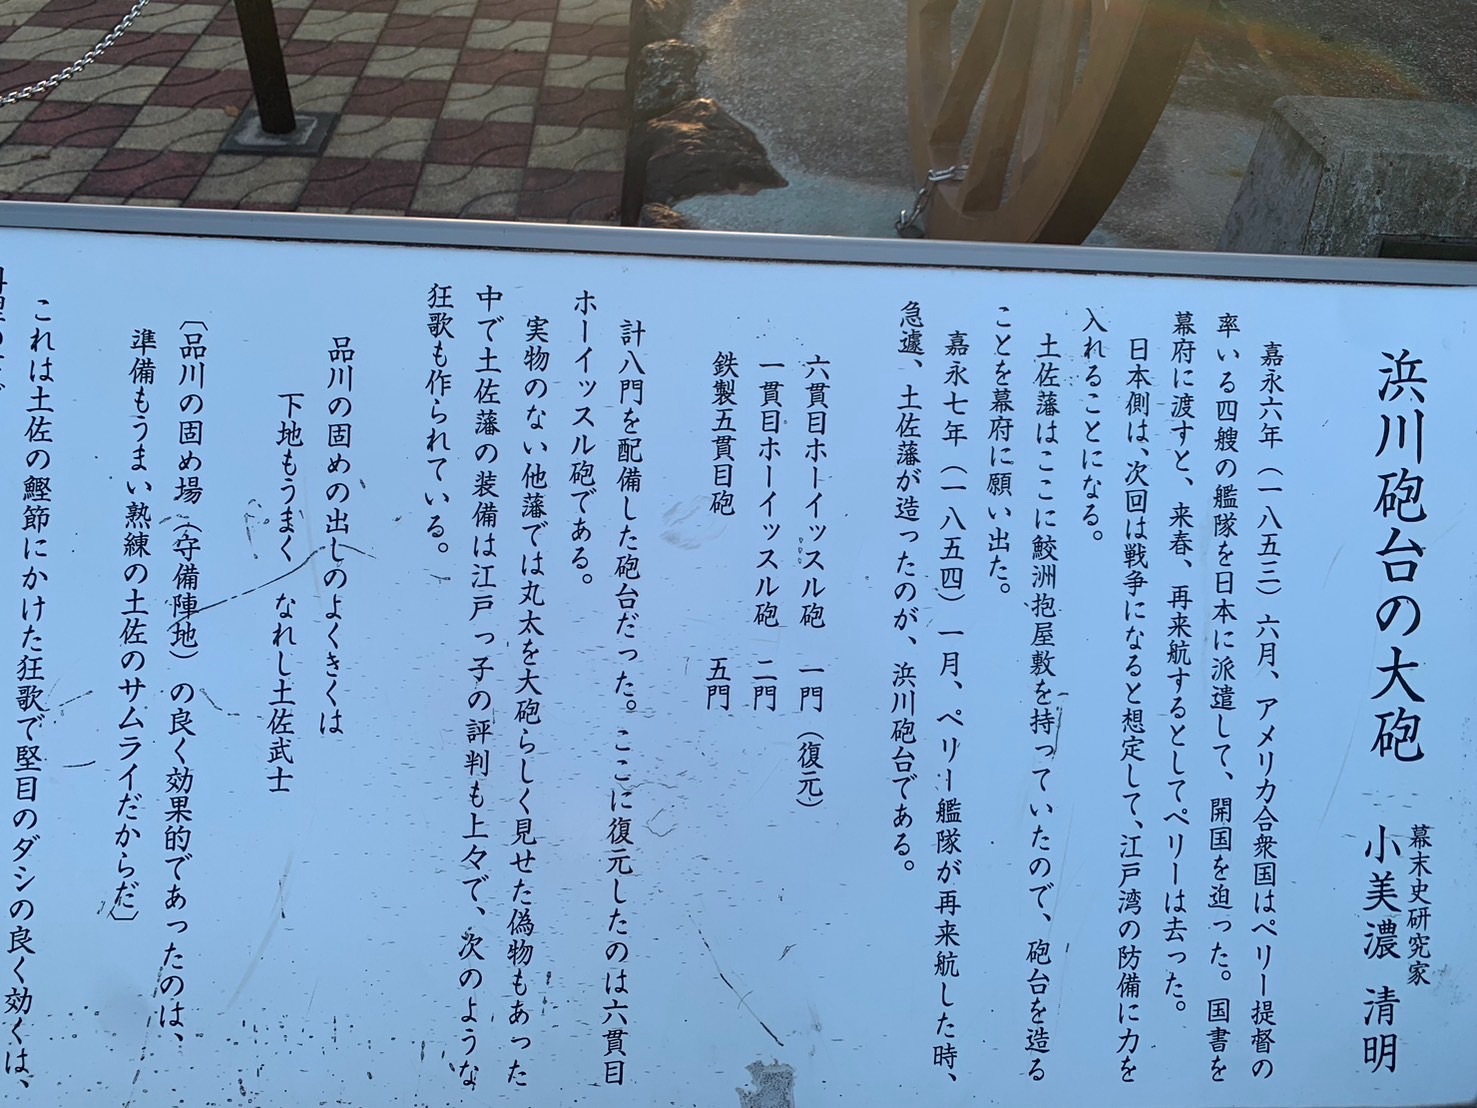 浜川砲台の大砲
幕末史研究家
小美濃 清明
嘉永六年（一八五三）六月、アメリカ合衆国はペリー提督の
率いる四艘の艦隊を日本に派遣して、開国を迫った。国書を
幕府に渡すと、来春、再来航するとしてペリーは去った。
日本側は、次回は戦争になると想定して、江戸湾の防備に力を
入れることになる。
土佐藩はここに鮫洲抱屋敷を持っていたので、砲台を造る
ことを幕府に願い出た。
嘉永七年（一八五四）一月、ペリー艦隊が再来航した時、
急遽、土佐藩が造ったのが、浜川砲台である。
六貫目ホーイッスル砲 一門（復元）
一貫目ホーイッスル砲 二門
鉄製五貫目砲 五門
計八門を配備した砲台だった。ここに復元したのは六貫目
ホーイッスル砲である。
実物のない他藩では丸太を大砲らしく見せた偽物もあった
中で土佐藩の装備は江戸っ子の評判も上々で、次のような
狂歌も作られている。
品川の固めの出しのよくきくは
下地もうまく なれし土佐武士
〔品川の固め場（守備陣地）の良く効果的であったのは、
準備もうまい熟練の土佐のサムライだからだ〕
これは土佐の鰹節にかけた狂歌で堅目のダシの良く効くは、